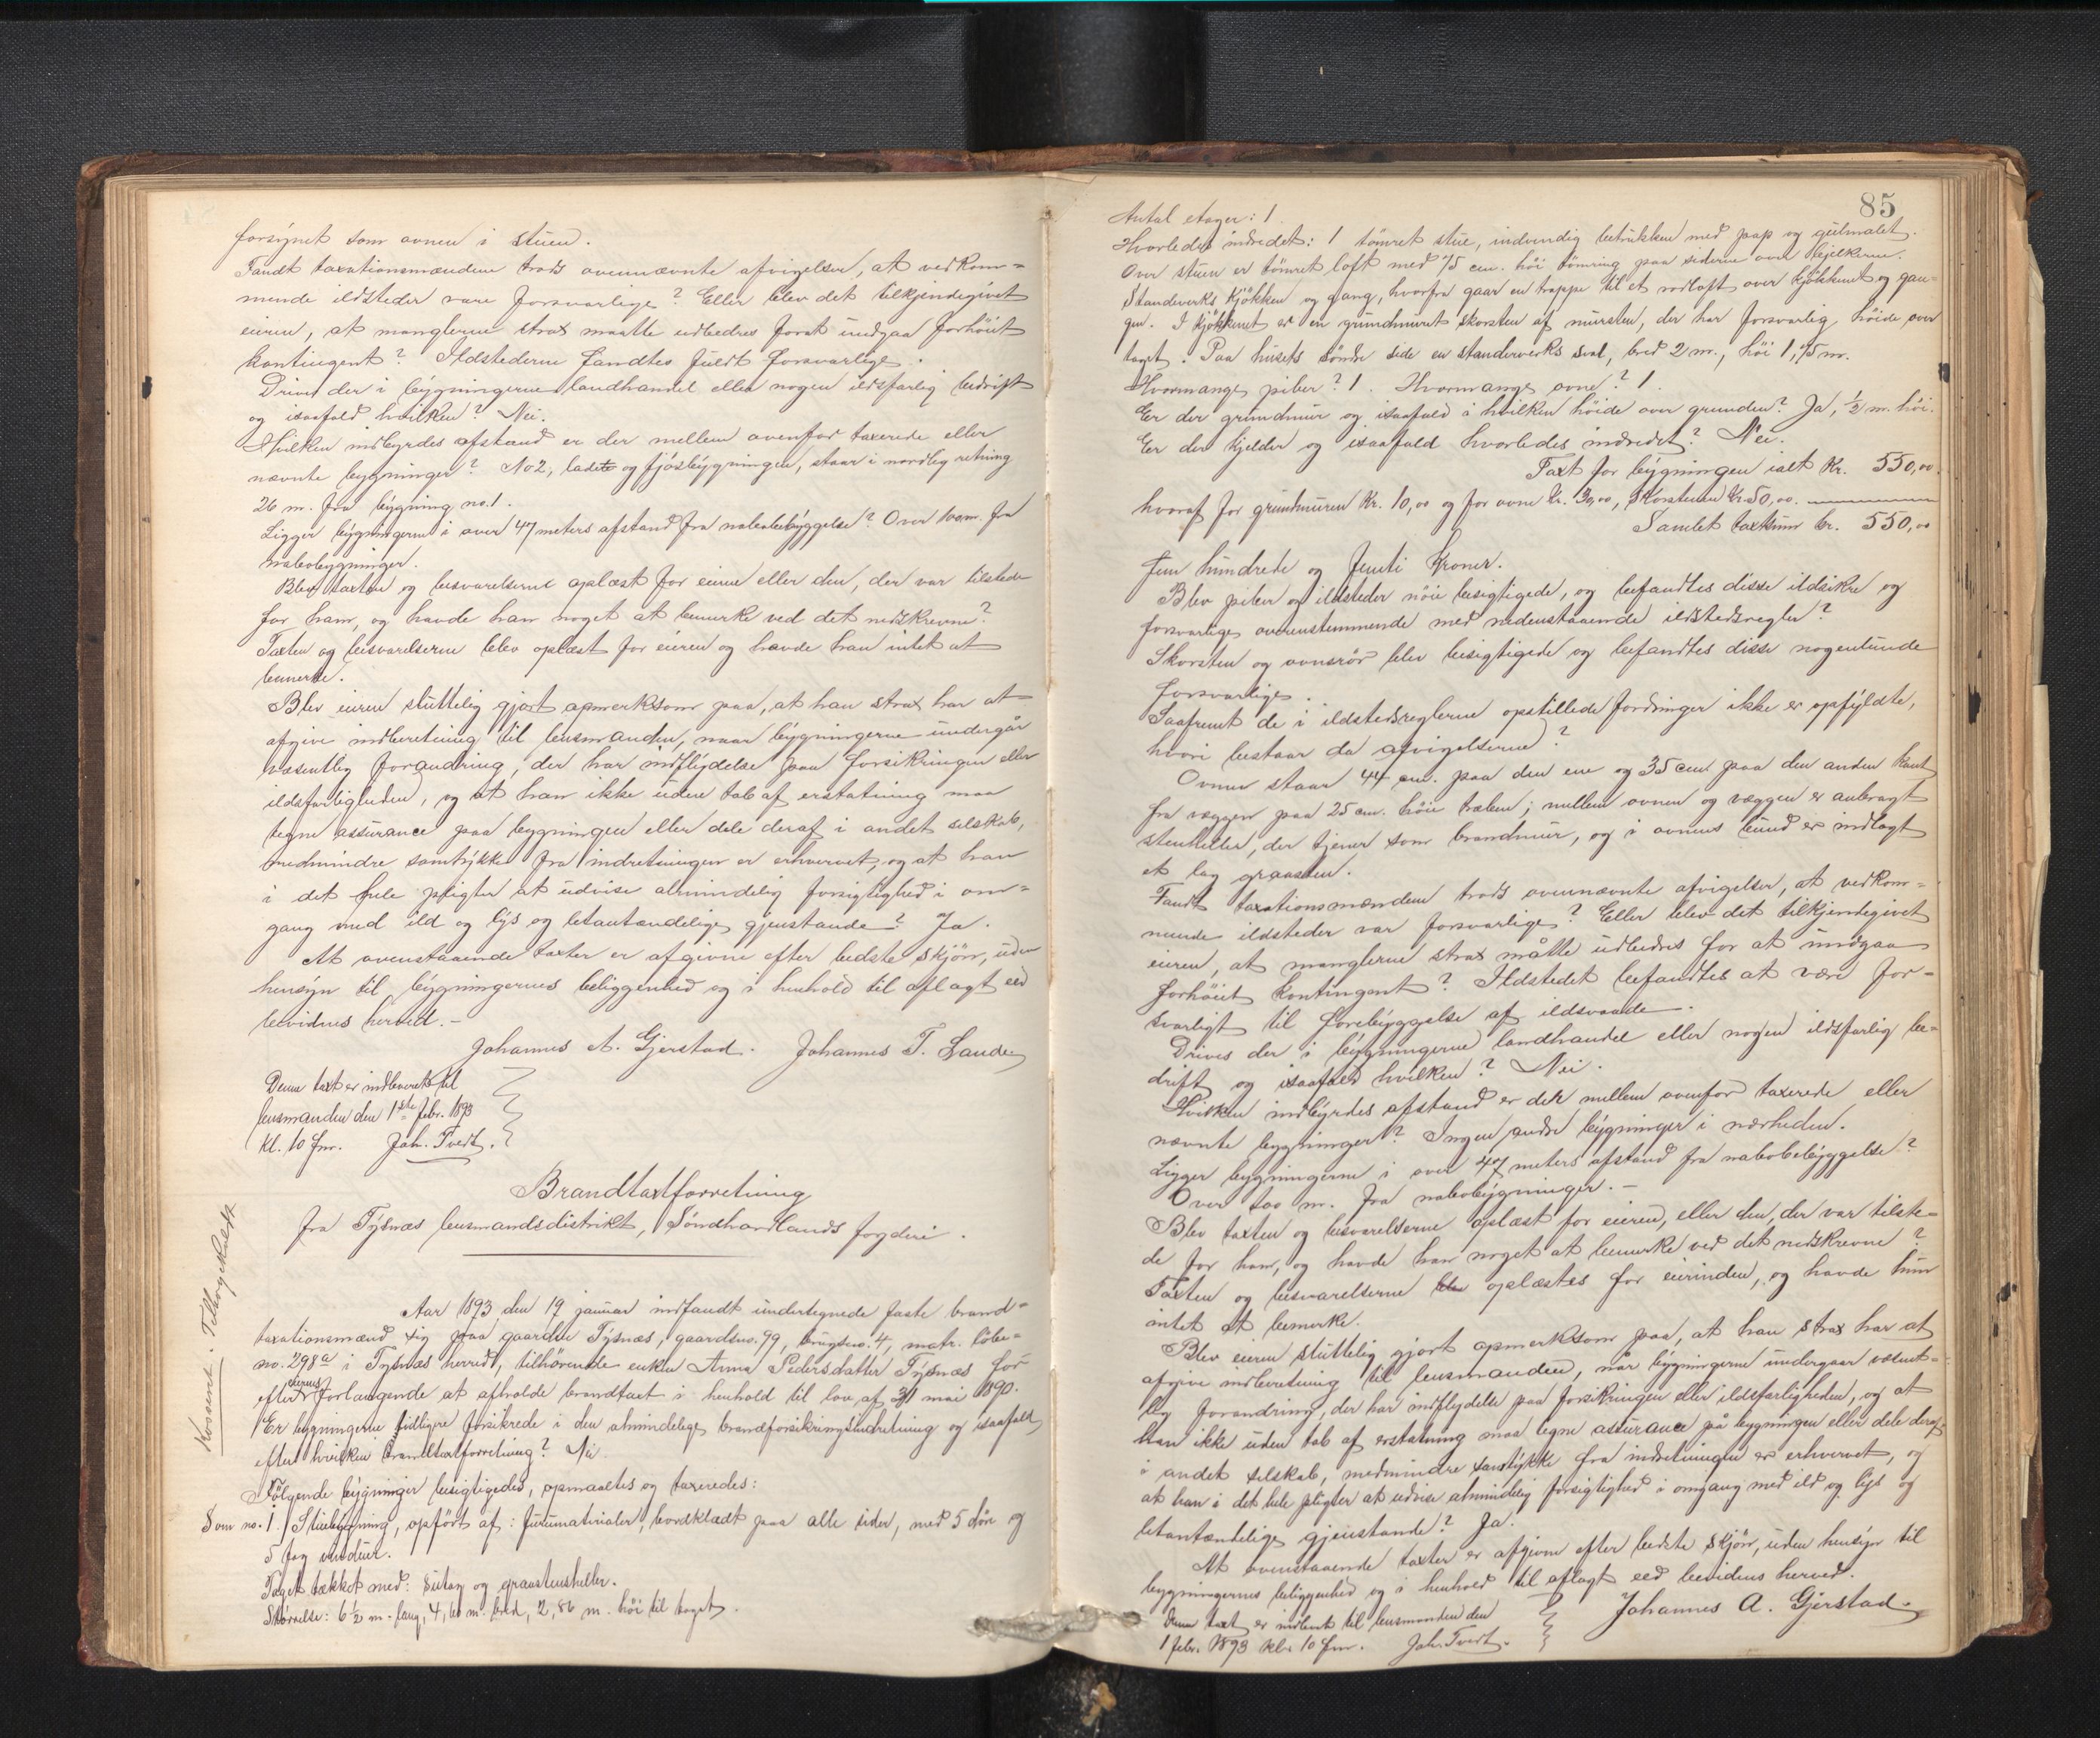 forsynet som ovnen i stuen.
Fandt taxationsmændene trods ovennævnte afvigelser, at vedkom-
mende ildsteder vare forsvarlige? Eller blev det tilkjendegivet
eieren, at manglerne strax maatte udbedres forat undgaa forhöiet
kontingent? Ildstederne fandtes fuldt forsvarlige.
Drives der i bygningerne landhandel eller nogen ildsfarlig bedrift
og isaafald hvilken? Nei.
Hvilken indbyrdes afstand er der mellem ovenfor taxerede eller
nævnte bygninger? No 2, lade og fjösbygningen, staar i nordlig retning
26 m. fra bygning no. 1.
Ligger bygningerne i over 47 meters afstand fra nabobebyggelse? Over 100 m. fra
nabobygninger.
Blev taxten og besvarelserne oplæst for eieren eller den, der var tilstede
for ham, og havde han noget at bemærke ved det nedskrevne?
Taxten og besvarelserne blev oplæst for eieren og havde han intet at
bemerke.
Blev eieren sluttelig gjort opmerksom paa, at han strax har at
afgive indberetning til lensmanden, naar bygningerne undergår
væsentlig forandring, der har indflydelse paa forsikringen eller
ildsfarligheden, og at han ikke uden tab af erstatning maa
tegne assurance paa bygningen eller dele deraf i andet selskab,
medmindre samtykke fra indretningen er erhvervet, og at han
i det hele pligter at udvise almindelig forsigtighed i om-
gang med ild og lys og letantændelige gjenstande? Ja.
At ovenstaaende taxter er afgivne efter bedste skjön, uden
hensyn til bygningernes beliggenhed og i henhold til aflagt eed
bevidnes herved.-
Johannes A. Gjerstad. Johannes T. Lande
Denne taxt er indleveret til
lensmanden den 1ste febr. 1893
kl. 10 fm. Joh. Tvedt.
Brandtaxtforretning
fra Tysnæs lensmandsdistrikt, Söndhordlands fogderi.
Kasseret. Tilbagekaldt
Aar 1893 den 19 januar indfandt undertegnede faste brand-
taxationsmænd sig paa gaarden Tysnæs, gaardsno. 99, brugsno. 4, matr. löbe-
no. 298a i Tysnæs herred, tilhörende enken Anna Pedersdatter Tysnæs for
efter eierens forlangende at afholde brandtaxt i henhold til lov af 31 mai 1890.
Er bygningerne tidligere forsikrede i den almindelige brandforsikringsindretning og isaafald
efter hvilken brandtaxtforretning? Nei.
Fölgende bygninger besigtigedes, opmaaltes og taxeredes:
Som no. 1. Stuebygning, opfört af: furumaterialer, bordklædt paa alle sider, med 5 döre og
5 fag vinduer.
Taget tækket med: sutag og graastensheller.
Störrelse: 6 1/2 m. lang, 4,60 m. bred, 2,86 m. höi til taget.
85
Antal etager: 1.
Hvorledes indredet: 1 tömret stue, indvendig betrukken med pap og gulmalet.
Over stuen er tömret loft med 75 cm. höi tömring paa siderne over bjelkerne.
Standerverks kjökken og gang, hvorfra gaar en trappe til et rodloft over kjökkenet og gan-
gen. I kjökkenet er en grundmuret skorsten af mursten, der har forsvarlig höide over
taget. Paa husets söndre side en standerverks sval, bred 2 m., höi 1,75 m.
Hvormange piber? 1. Hvormange ovne? 1.
Er der grundmur og isaafald i hvilken höide over grunden? Ja, 1/2 m. höi.
Er der kjelder og isaafald hvorledes indredet? Nei.
Taxt for bygningen ialt Kr. 550,00.
hvoraf for grundmuren Kr. 10,00 og for ovne Kr. 30,00, skorstenen Kr. 50,00.
Samlet taxtsum kr. 550,00
fem hundrede og femti Kroner.
Blev piber og ildsteder nöie besigtigede, og befandtes disse ildsikre og
forsvarlige overensstemmende med nedenstaaende ildstedsregler?
Skorsten og ovnsrör blev besigtigede og befandtes disse nogenlunde
forsvarlige.
Saafremt de i ildstedsreglerne opstillede fordringer ikke er opfyldte,
hvori bestaar da afvigelserne?
Ovnen staar 44 cm. paa den ene og 35 cm. paa den anden kant
fra væggen paa 25 cm. höie træben; mellem ovnen og væggen er anbragt
stenheller, der tjener som brandmur, og i ovnens bund er indlagt
et lag graasten.
Fandt taxationsmændene trods ovennævnte afvigelser, at vedkom-
mende ildsteder var forsvarlige? Eller blev det tilkjendegivet
eieren, at manglerne strax måtte udbedres for at undgaa
forhöiet kontingent? Ildstedet befandtes at være for-
svarligt til forebyggelse af ildsvaade.
Drives der i bygningerne landhandel eller nogen ildsfarlig be-
drift og isaafald hvilken? Nei.
Hvilken indbyrdes afstand er der mellem ovenfor taxerede eller
nævnte bygninger? Ingen andre bygninger i nærheden.
Ligger bygningerne i over 47 meters afstand fra nabobebyggelse?
Over 100 m. fra nabobygninger.-
Blev taxten og besvarelserne oplæst for eieren, eller den, der var tilste-
de for ham, og havde han noget at bemerke ved det nedskrevne?
Taxten og besvarelserne blev oplæstes for eierinden, og havde hun
intet at bemerke.
Blev eieren sluttelig gjort opmerksom paa, at han strax har at
afgive indberetning til lensmanden, når bygningerne undergaar væsent-
lig forandring, der har indflydelse paa forsikringen eller ildsfarligheden, og at
han ikke uden tab af erstatning maa tegne assurance på bygningen eller dele deraf
i andet selskab, medmindre samtykke fra indretningen er erhvervet, og
at han i det hele pligter at udvise almindelig forsigtighed i omgang med ild og lys og
letantændelige gjenstande? Ja.
At ovenstaaende taxter er afgivne efter bedste skjön, uden hensyn til
bygningernes beliggenhed og i henhold til aflagt eed bevidnes herved.
Johannes A. Gjerstad.
Denne taxt er indlevet til lensmanden den
1 febr. 1893 kl. 10 fm. Joh. Tvedt.